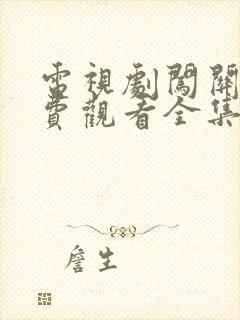 電視劇闖關
費觀看全集
詹生